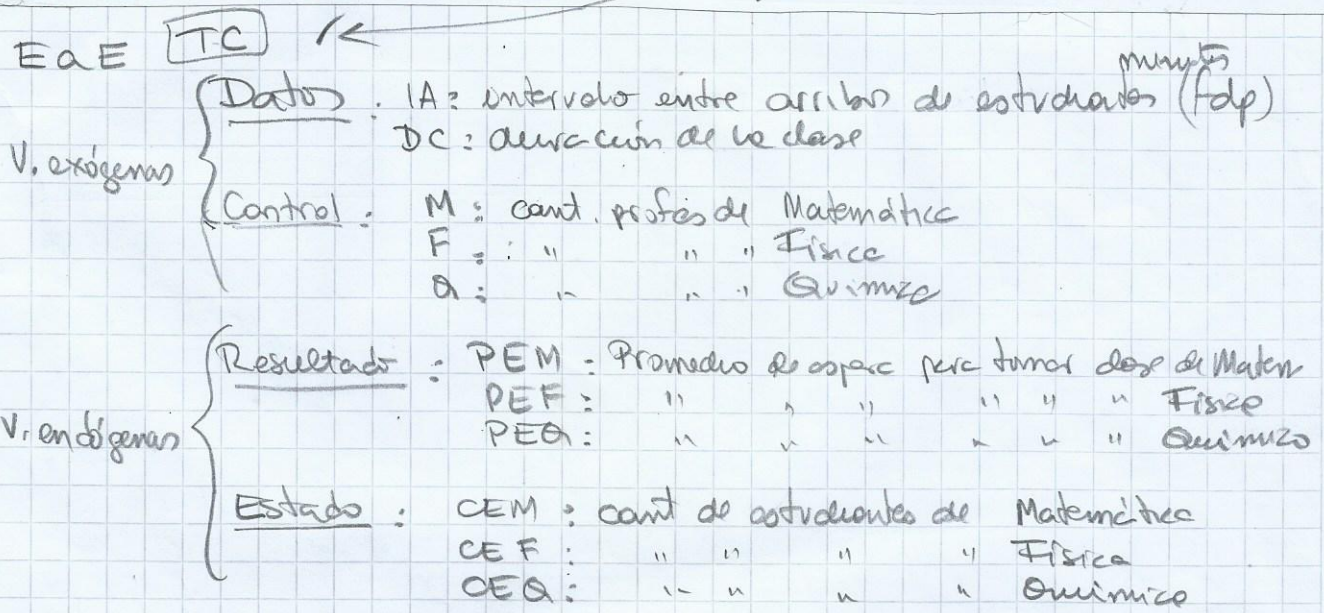 EaE TC
minutos
Datos : IA : intervalo entre arribos de estudiantes (fdp)
DC : duración de la clase
V. exógenas
Control : M : cant. profes de Matemática
F : " " " Física
Q : " " " Química
Resultado : PEM : Promedio de espera para tomar clase de Matem
PEF : " " " " " " Física
V. endógenas
PEQ : " " " " " " Química
Estado : CEM : cant de estudiantes de Matemática
CEF : " " " " Física
CEQ : " " " " Química